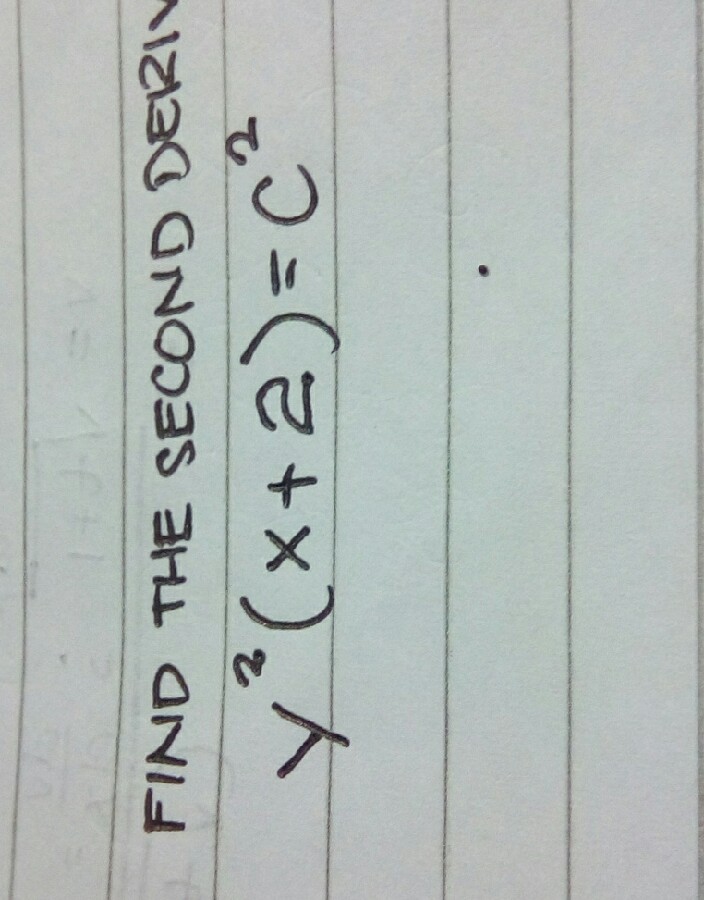 FIND THE SECOND DERIV
y²(x+2)=C²